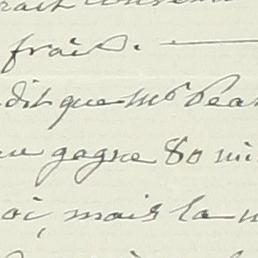 frais. —
dit que Mr Pea
gagne 80 mi
oi, mais la